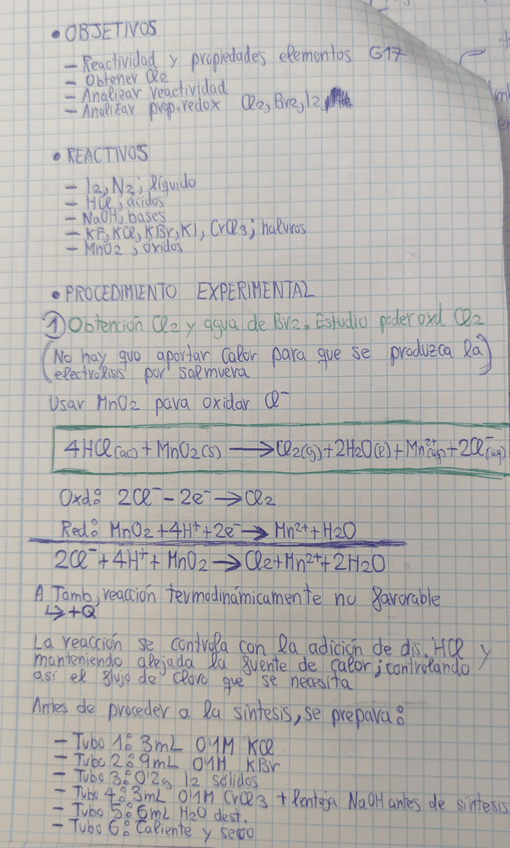 • OBJETIVOS
– Reactividad y propiedades elementos G17
– Obtener Cl2
– Analizar reactividad
– Analizar prop.redox Cl2, Br2, I2
• REACTIVOS
– I2, N2; líquido
– HCl, ácidos
– NaOH, bases
– KF, KCl, KBr, KI, CrCl3; haluros
– MnO2, óxidos
• PROCEDIMIENTO EXPERIMENTAL
① Obtención Cl2 y agua de Br2. Estudio poder oxd Cl2
(No hay que aportar calor para que se produzca la
electrolisis por salmuera)
Usar MnO2 para oxidar Cl⁻
4HCl(ac) + MnO2(s) → Cl2(g) + 2H2O(l) + Mn²⁺(aq) + 2Cl⁻(aq)
Oxd: 2Cl⁻ – 2e⁻ → Cl2
Red: MnO2 + 4H⁺ + 2e⁻ → Mn²⁺ + H2O
2Cl⁻ + 4H⁺ + MnO2 → Cl2 + Mn²⁺ + 2H2O
A Tamb, reacción termodinámicamente no favorable
↳ +Q
La reacción se controla con la adición de dis. HCl y
manteniendo alejada la fuente de calor; controlando
así el flujo de cloro que se necesita
Antes de proceder a la síntesis, se prepara:
– Tubo 1: 3mL 0'1M KCl
– Tubo 2: 9mL 0'1M KBr
– Tubo 3: 0'2g I2 sólidos
– Tubo 4: 3mL 0'1M CrCl3 + lenteja NaOH antes de síntesis
– Tubo 5: 6mL H2O dest.
– Tubo 6: Caliente y seco